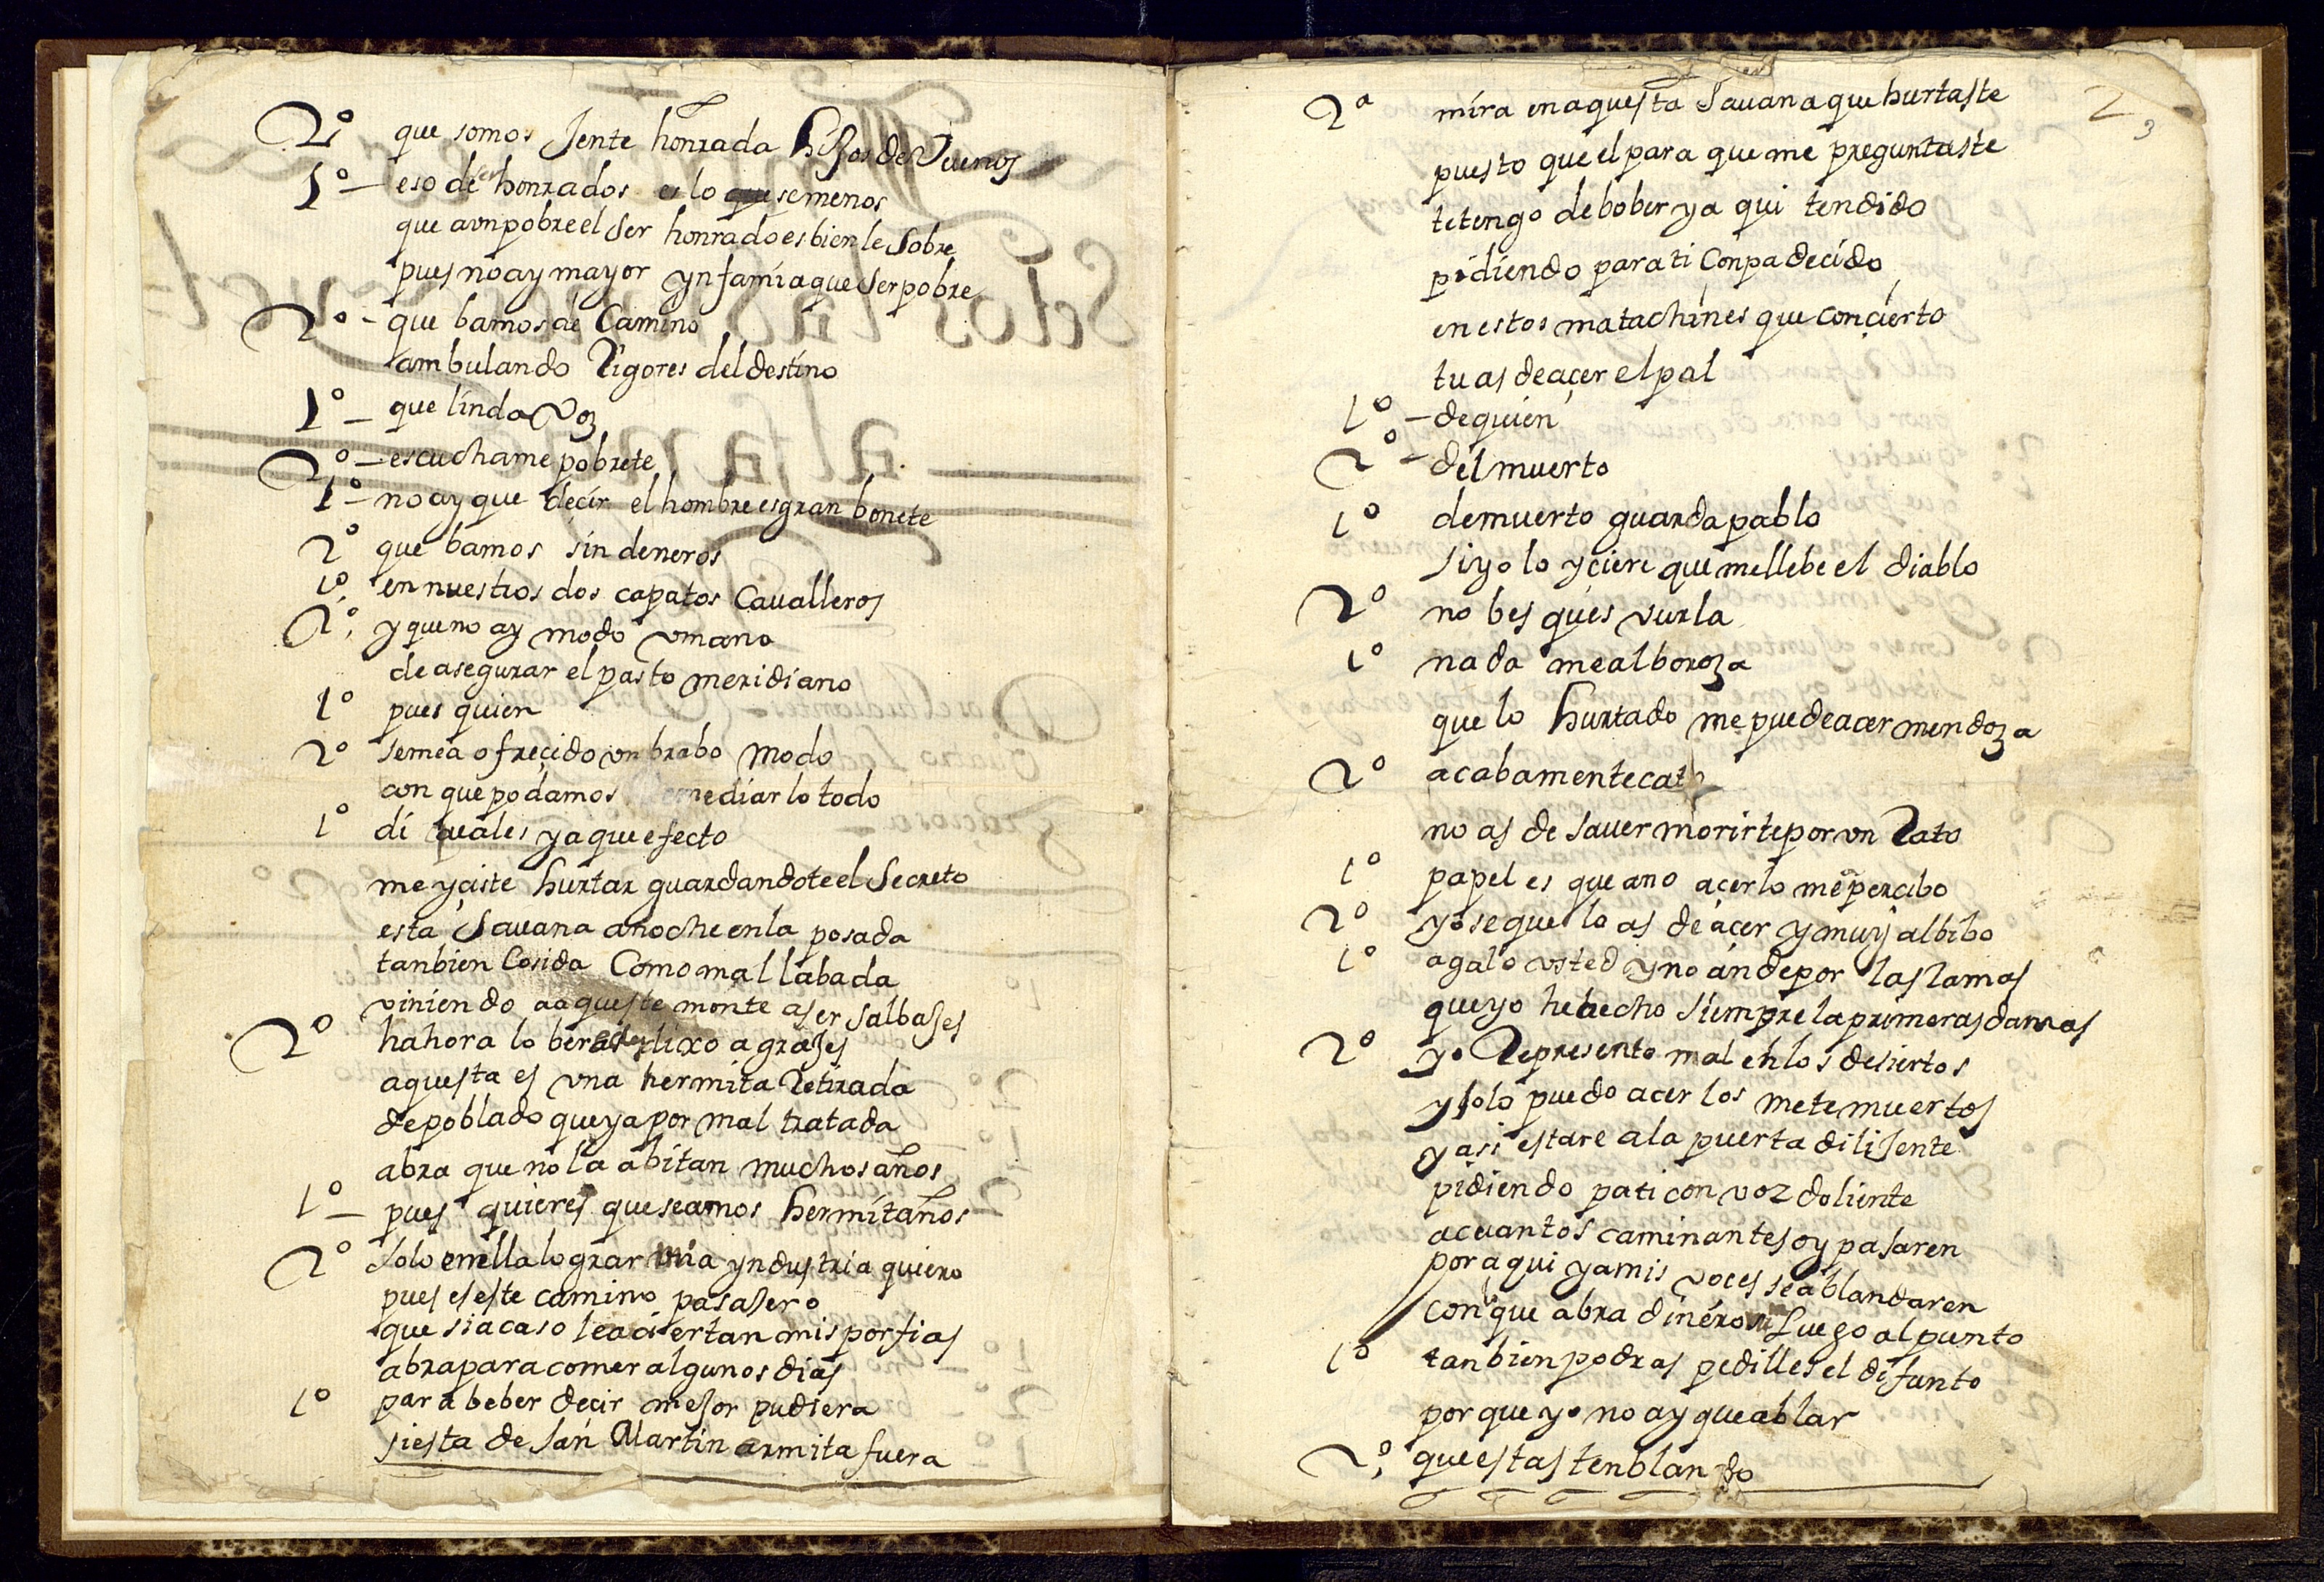 2º que somos Jente honrada hiJos de Vuenos
1º — eso de ser honrados es lo que se menos
que a vn pobre el ser honrado es bien le sobre
pues no ay mayor ynfamia que ser pobre
2º - que bamos de Camino
ambulando Rigores del destino
1º — que linda Voz
2º — escuchame pobrete
1º — no ay que deçir el hombre es gran bonete
2º que bamos sin deneros
1º en nuestros dos çapatos Caualleros
2º y que no ay modo vmano
de asegurar el pasto meridiano
1º pues quien
2º se me a ofreçido vn brabo modo
con que podamos Remediarlo todo
1º di qual es y a que efecto
me yçiste hurtar guardandote el Secreto
esta Sauana anoche en la posada
tanbien Cosida Como mal labada
viniendo a aqueste monte a ser salbaJes
2º hahora lo beras dixo agraJes
aquesta es vna hermita Retirada
de poblado que ya por mal tratada
abra que no la abitan muchos años
1º — pues quieres que seamos hermitaños
2º solo en ella lograr vna yndustria quiero
pues es este camino pasaJero
que si acaso le açiertan mis porfias
abra para comer algunos dias
1º para beber deçir meJor pudiera
si esta de san Martin ermita fuera
2
3
2ª mira en aquesta Sauana que hurtaste
puesto que el para que me preguntaste
te tengo de bober y a qui tendido
pidiendo para ti Conpadecido
en estos matachines que conçierto
tu as de açer el pal
1º — de quien
2º — del muerto
1º de muerto guarda pablo
si yo lo yçiere que me llebe el diablo
2º no bes qu es vurla
1º nada me alboroza
que lo hurtado me puede acer mendoza
2º acaba mentecato
no as de sauer morirte por vn Rato
1º papel es que a no açerlo me aperçibo
2º yo se que lo as de açer y muy al bibo
1º agalo vsted y no ande por las lamas
que yo he hecho siempre la primeras damas
2º yo Represento mal en los desiertos
y solo puedo acer los metemuertos
y asi estare a la puerta diliJente
pidiendo pa ti con voz doliente
a cuantos caminantes oy pasaren
por aqui y a mis voces se ablandaren
con que abra dinero Luego al punto
1º tanbien podras pedilles el difunto
por que yo no ay que ablar
2º que estas tenblando